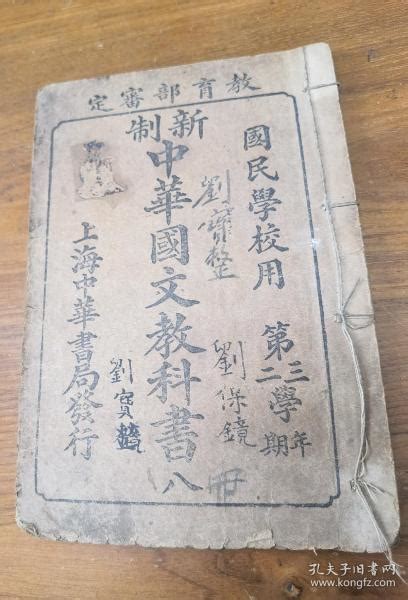 教育部審定
國民學校用
第三學年
第二學期
新制
中華國文教科書八
冊
劉寶整
劉保鏡
劉寶
上海中華書局發行
孔夫子旧书网
book.kongfz.com